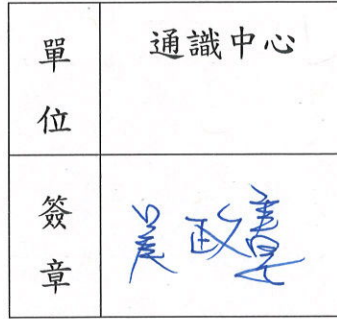 單位
通識中心
簽章
政憲